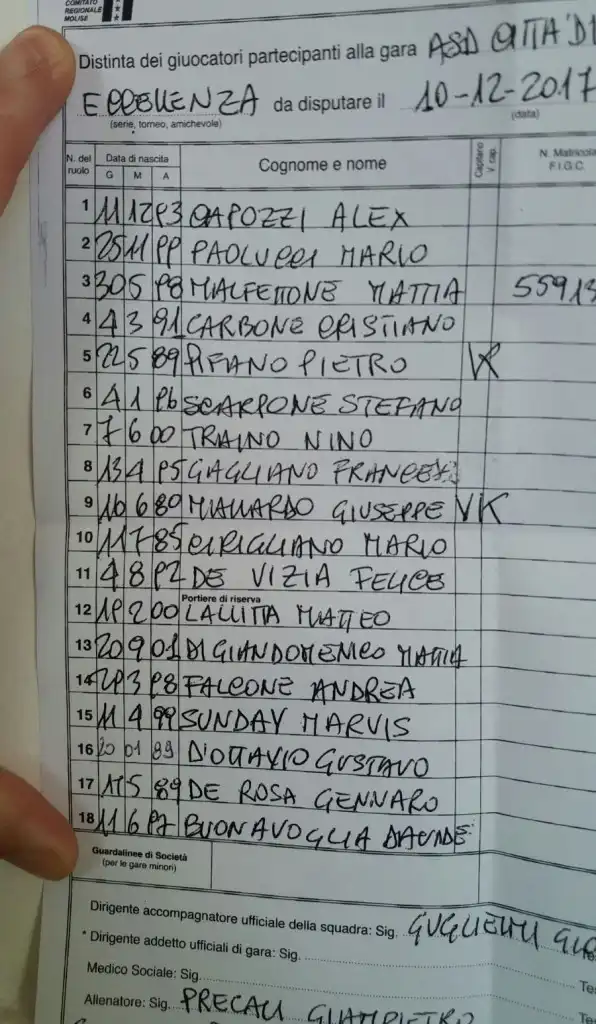 COMITATO
REGIONALE
MOLISE
Distinta dei giuocatori partecipanti alla gara ASD CITTA' DI
ECCELLENZA da disputare il 10-12-2017
(serie, torneo, amichevole) (data)
N. del ruolo Data di nascita G M A Cognome e nome Capitano V. cap. N. Matricola F.I.G.C.
1 11 12 93 CAPOZZI ALEX
2 25 11 99 PAOLUCCI MARIO
3 30 5 98 MALFETTONE MATTIA 55913
4 4 3 91 CARBONE CRISTIANO
5 22 5 89 PIFANO PIETRO K
6 4 1 96 SCARPONE STEFANO
7 7 6 00 TRAINO NINO
8 13 4 95 GAGLIANO FRANCESC
9 16 6 80 MIALLARDO GIUSEPPE VK
10 11 7 85 CIRIGLIANO MARIO
11 4 8 92 DE VIZIA FELICE
Portiere di riserva
12 19 2 00 LALLITTA MATTEO
13 20 9 01 DI GIANDOMENICO MATTIA
14 29 3 98 FALCONE ANDREA
15 11 4 99 SUNDAY MARVIS
16 20 01 89 D'OTTAVIO GUSTAVO
17 17 5 89 DE ROSA GENNARO
18 11 6 97 BUONAVOGLIA DAVIDE
Guardalinee di Società
(per le gare minori)
Dirigente accompagnatore ufficiale della squadra: Sig. GUGLIELMI
* Dirigente addetto ufficiali di gara: Sig. Te
Medico Sociale: Sig. Te
Allenatore: Sig. PRECALI GIAMPIETRO Te